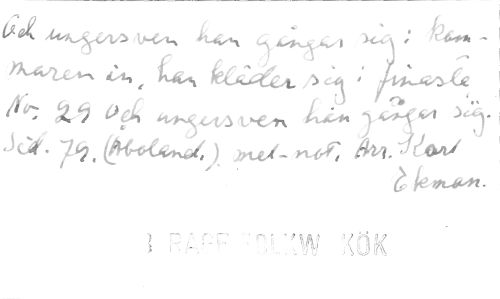 Och ungersven han gångar sig i kam-
maren in, han kläder sig i finaste
No. 29 Och ungersven han gångar sig.
Sid. 79. (Åboland.) mel-not. Arr. Karl
Ekman.
KÖK